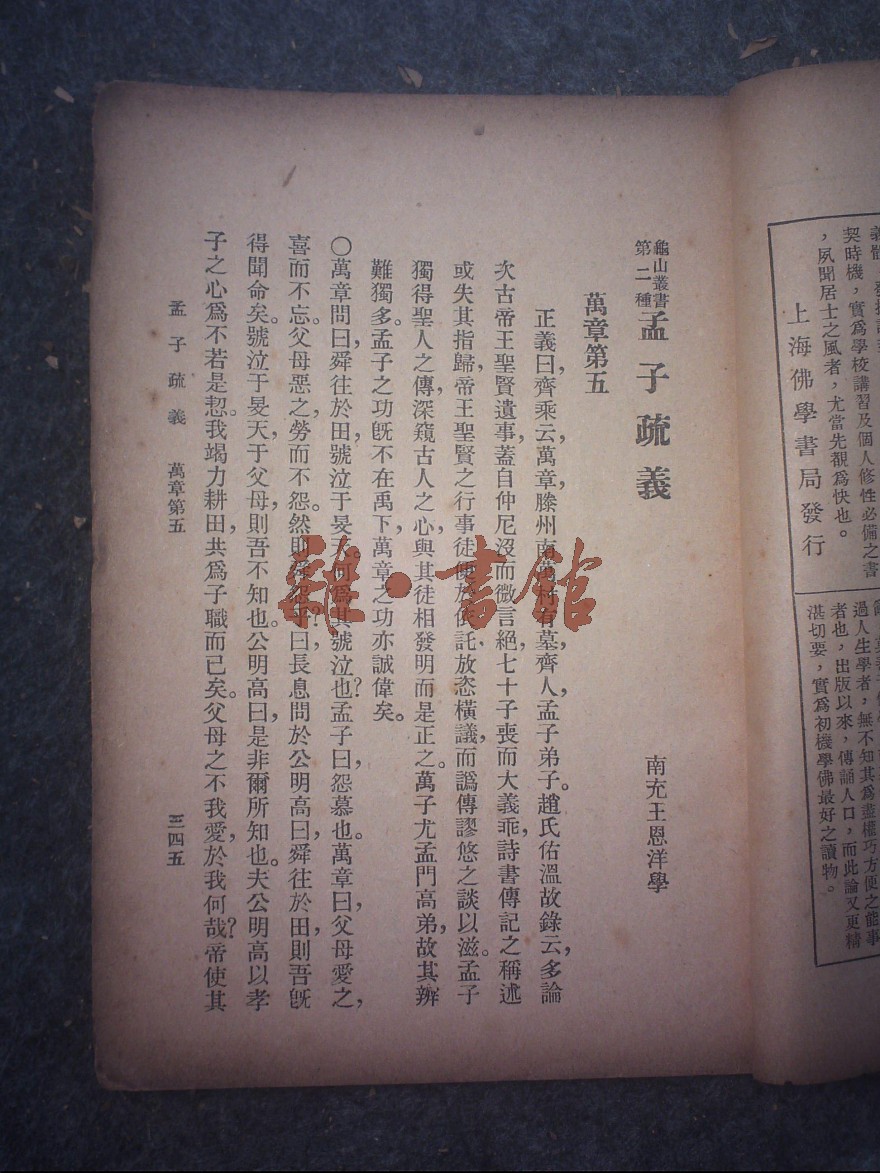 義體
契時機，實爲學校講習及個人修性必備之書
，夙聞居士之風者，尤當先覩爲快也。
上海佛學書局發行
過人生學者，無不知其爲盡權巧方便之能事
者也，出版以來，傳誦人口，而此論又更精
湛切要，實爲初機學佛最好之讀物。
龜山叢書
第二種
孟子疏義
南充王恩洋學
萬章第五
正義曰，齊乘云，萬章，滕州南萬村有墓，齊人，孟子弟子。趙氏佑溫故錄云，多論
次古帝王聖賢遺事，蓋自仲尼沒而微言絕，七十子喪而大義乖，詩書傳記之稱述
或失其指歸，帝王聖賢之行事徒便於依託，放恣橫議，而譌傳謬悠之談以滋。孟子
獨得聖人之傳，深窺古人之心，與其徒相發明而是正之。萬子尤孟門高弟，故其辨
難獨多。孟子之功旣不在禹下，萬章之功亦誠偉矣。
○萬章問曰，舜往於田，號泣于旻天，何爲其號泣也？孟子曰，怨慕也。萬章曰，父母愛之，
喜而不忘。父母惡之，勞而不怨。然則舜怨乎？曰，長息問於公明高曰，舜往於田，則吾旣
得聞命矣。號泣于旻天，于父母，則吾不知也。公明高曰，是非爾所知也。夫公明高以孝
子之心爲不若是恝。我竭力耕田，共爲子職而已矣。父母之不我愛，於我何哉？帝使其
孟子疏義 萬章第五 三四五
雜·書館